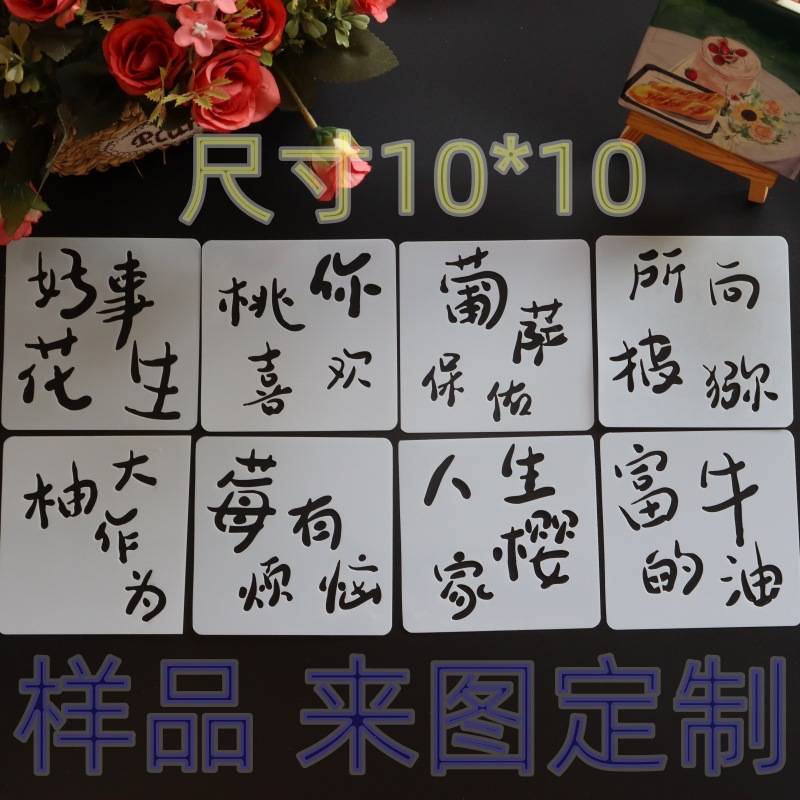 尺寸10*10
好事
花生
桃你
喜欢
葡萨
保佑
所向
披猕
柚大
作为
莓有
烦恼
人生
家樱
富牛
的油
样品 来图定制